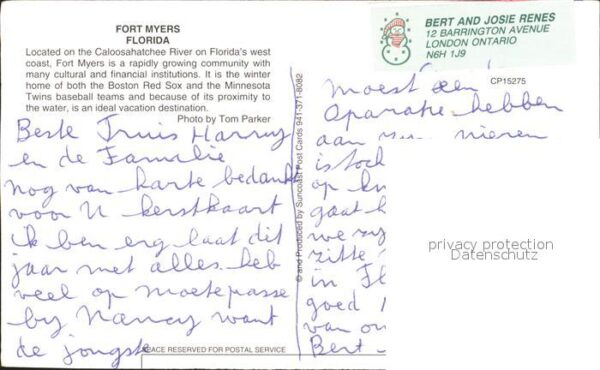 FORT MYERS
FLORIDA
Located on the Caloosahatchee River on Florida's west
coast, Fort Myers is a rapidly growing community with
many cultural and financial institutions. It is the winter
home of both the Boston Red Sox and the Minnesota
Twins baseball teams and because of its proximity
to the water, is an ideal vacation destination.
Photo by Tom Parker
Beste Truis Harry
en de Familie
nog van harte bedankt
voor U kerstkaart
ik ben erg laat dit
jaar met alles. heb
veel op moetepasse
by Nancy want
de jongste
PLACE RESERVED FOR POSTAL SERVICE
© and Produced by Suncoast Post Cards 941-371-8082
BERT AND JOSIE RENES
12 BARRINGTON AVENUE
LONDON ONTARIO
N6H 1J9
CP15275
moest een
Oparatie hebben
aan nieren
is toch
op
gaat
we
zitte
in Fl
goed
van on
Bert
privacy protection
Datenschutz